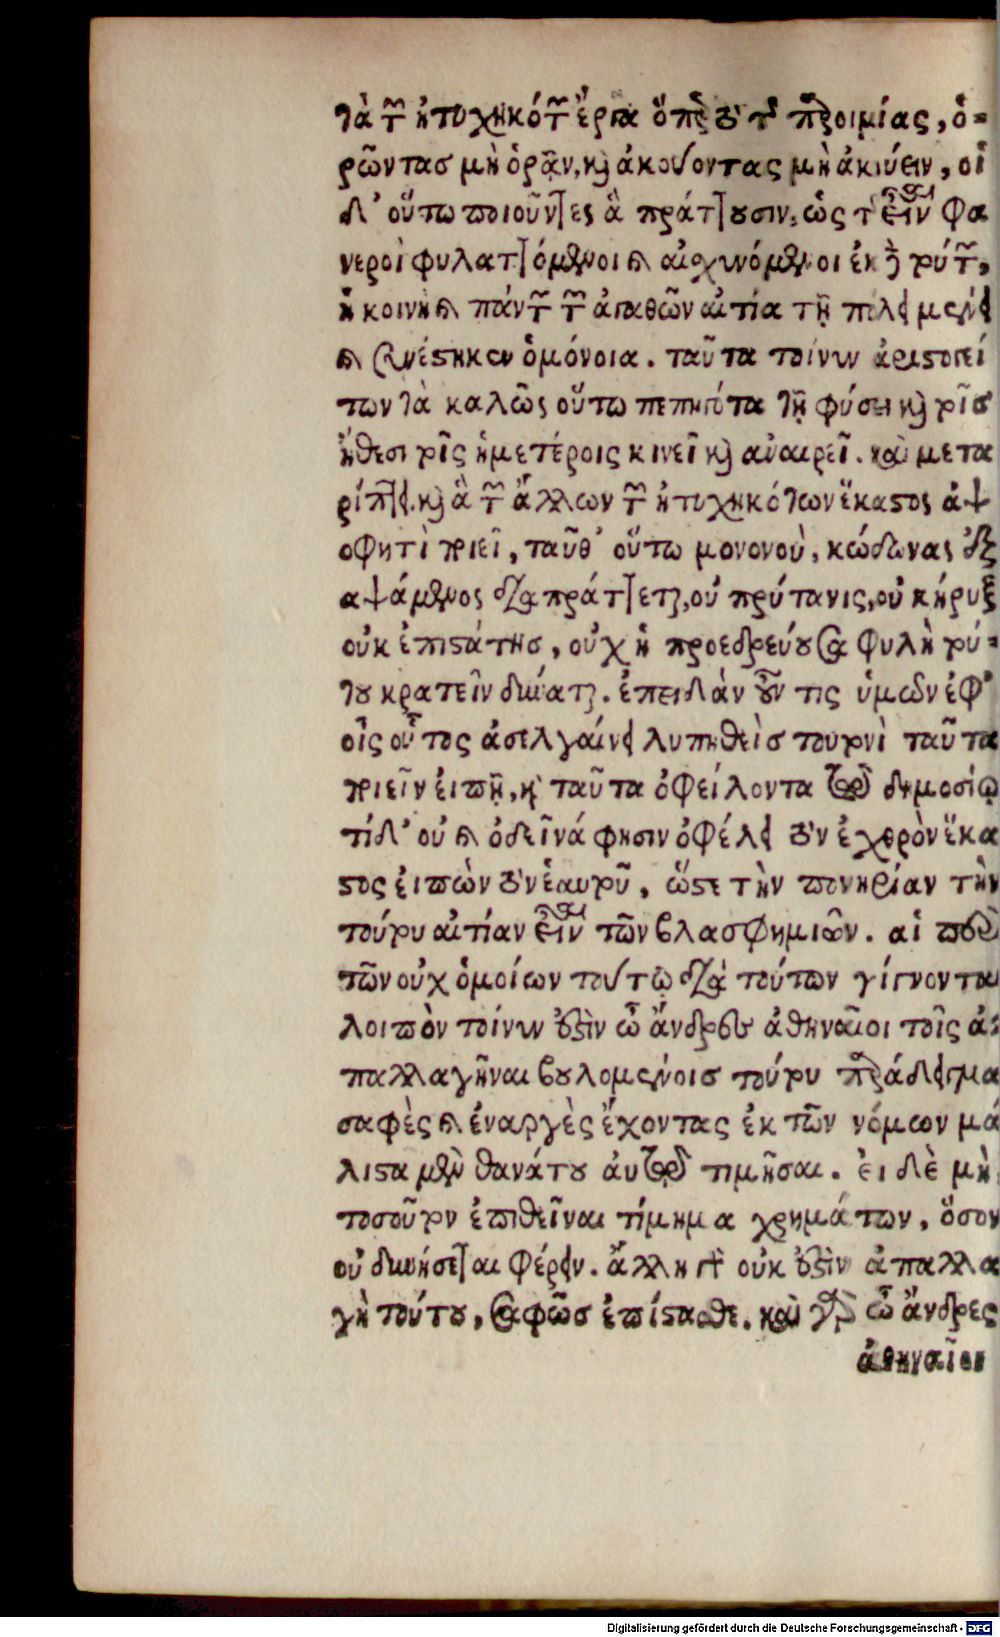 τὰ τῶν ἠτυχηκότων ἔργα ὅπερ ἐστὶ τὸ τῆς παροιμίας, ὁ-
ρῶντασ μὴ ὁρᾷν, καὶ ἀκούοντας μὴ ἀκούειν, οἱ
δ' οὕτω ποιοῦντες ἃ πράττουσιν, ὡς τ' εἶναι φα
νεροὶ φυλαττόμενοι καὶ αἰσχυνόμενοι ἐκ τούτων,
ἡ κοινὴ καὶ πάντων τῶν ἀγαθῶν αἰτία τῇ πόλει μένει
καὶ συνέστηκεν ὁμόνοια. ταῦτα τοίνυν ἀριστογεί
των τὰ καλῶς οὕτω πεπηγότα τῇ φύσει καὶ τοῖσ
ἤθεσι τοῖς ἡμετέροις κινεῖ καὶ ἀναιρεῖ. καὶ μετα
ρίπτει. καὶ ἃ τῶν ἄλλων τῶν ἠτυχηκότων ἕκαστος ἀψ
οφητὶ ποιεῖ, ταῦθ' οὕτω μονονοὺ, κώδωνας ἐξ
αψάμενος διαπράττεται, οὐ πρύτανις, οὐ κήρυξ
οὐκ ἐπιστάτησ, οὐχ ἡ προεδρεύουσα φυλὴ τού-
του κρατεῖν δύναται. ἐπειδὰν οὖν τις ὑμῶν ἐφ'
οἷς οὗτος ἀσελγαίνει λυπηθεὶσ τουτονὶ ταῦτα
ποιεῖν εἰπῇ, καὶ ταῦτα ὀφείλοντα τῷ δημοσίῳ
τί δ' οὐ καὶ ὁ δεῖνά φησιν ὀφείλει τὸν ἐχθρὸν ἕκα
στος εἰπὼν τὸν ἑαυτοῦ, ὥστε τὴν πονηρίαν τὴν
τούτου αἰτίαν εἶναι τῶν βλασφημιῶν. αἱ περὶ
τῶν οὐχ ὁμοίων τούτῳ διὰ τούτων γίγνονται
λοιπὸν τοίνυν ἐστὶν ὦ ἄνδρες ἀθηναῖοι τοῖς ἀ-
παλλαγῆναι βουλομένοισ τούτου παράδειγμα
σαφὲς καὶ ἐναργὲς ἔχοντας ἐκ τῶν νόμων μά
λιστα μὲν θανάτου αὐτῷ τιμῆσαι. εἰ δὲ μὴ
τοσοῦτον ἐπιθεῖναι τίμημα χρημάτων, ὅσον
οὐ δυνήσεται φέρειν. ἄλλη γὰρ οὐκ ἔστιν ἀπαλλα
γὴ τούτου, σαφῶσ ἐπίστασθε. καὶ γὰρ ὦ ἄνδρες
ἀθηναῖοι
Digitalisierung gefördert durch die Deutsche Forschungsgemeinschaft - DFG